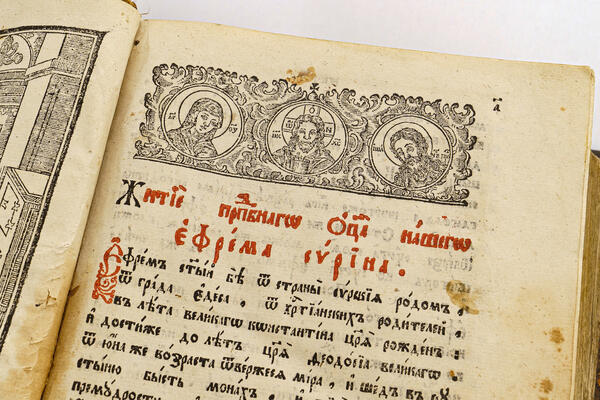 ҂а
Житїе прпⷣбнагѡ Оц҃а нашегѡ
Ефре́ма сѵ́рїна .
Ефре́мъ ст҃ы́й бѣ̀ ѿ страны̀ сѵрскїѧ ро́домъ ,
ѿ града Едеса , ѿ хрⷭтїа́нскихъ роди́телей ,
въ лѣ̑та вели́кагѡ кѡнстанті́на цр҃ѧ̀ рожде́нъ :
и҆ дости́же до лѣ́тъ цр҃ѧ̀ ѳеодо́сїа вели́кагѡ .
ѿ ю҆́на же во́зраста ѿве́ржесѧ мі́ра , и҆ ше́дъ въ пꙋ
сты́ню бы́сть мона́хъ ,
премꙋ́дрости